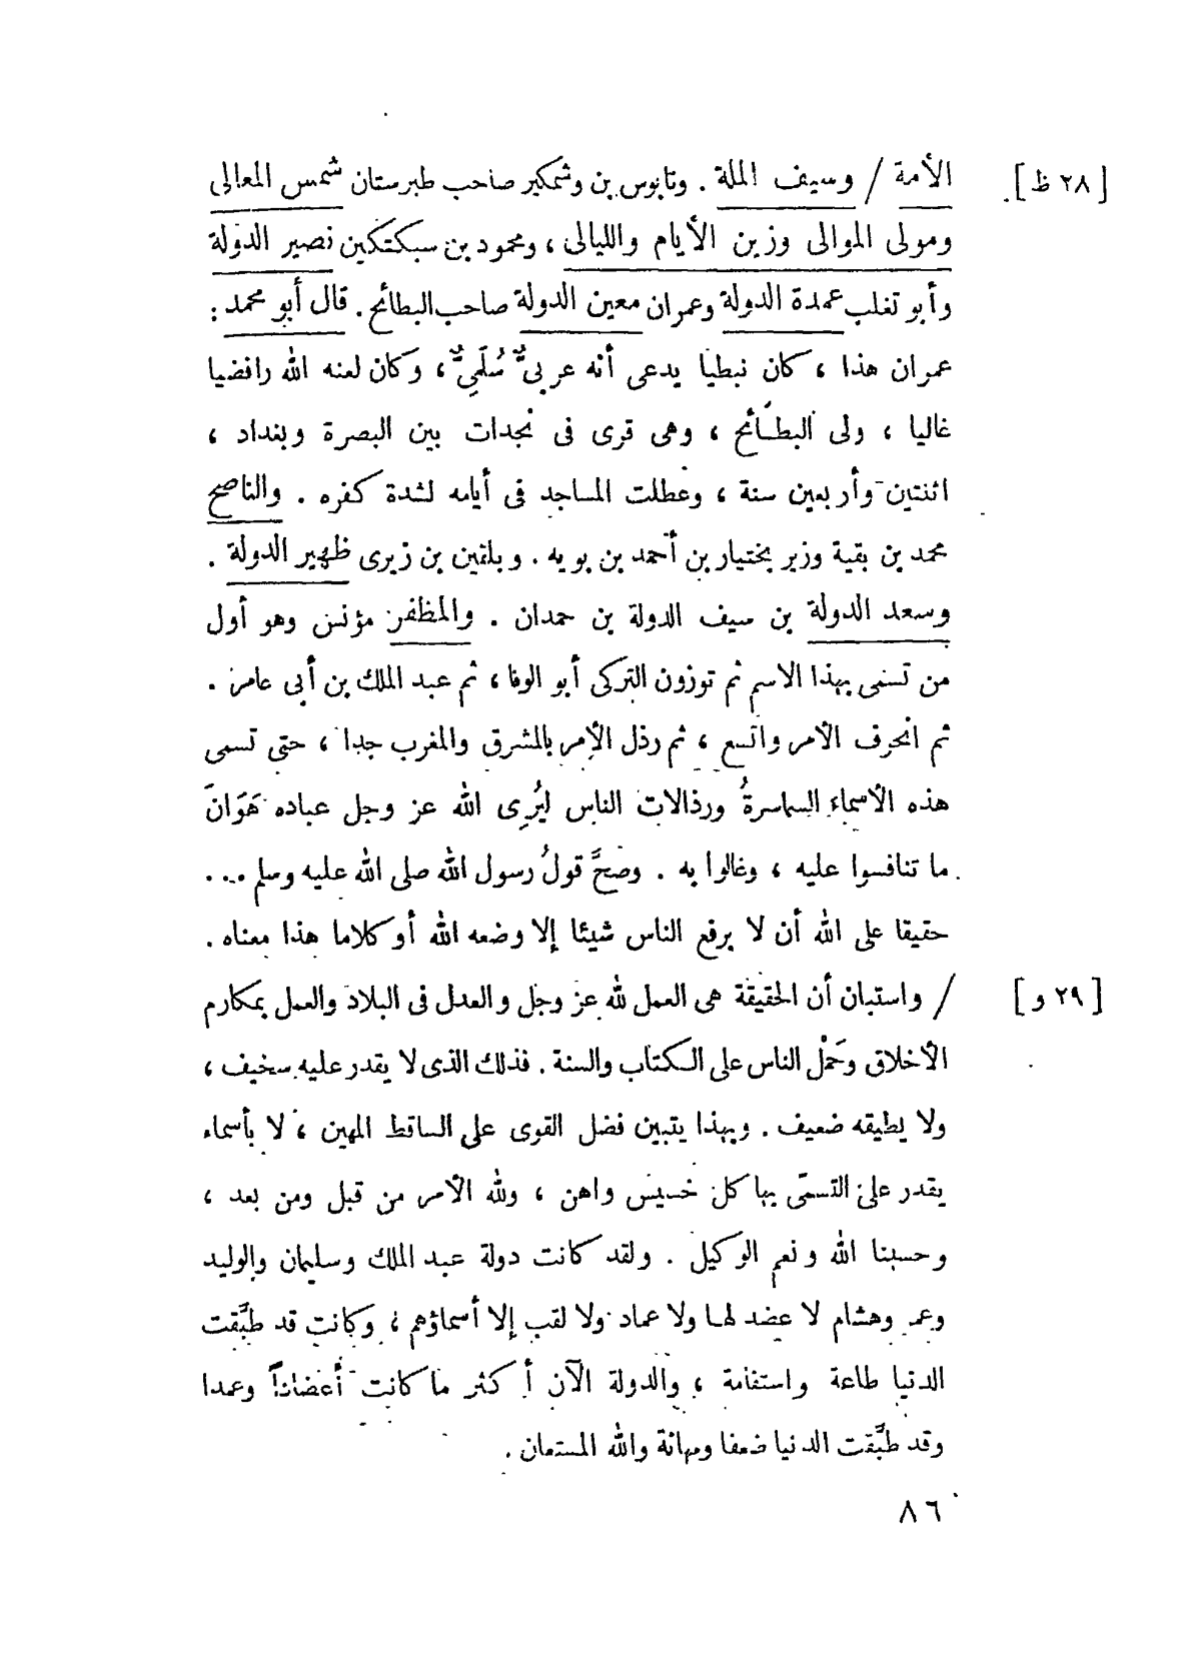 [ ٢٨ ظ ] الأمة / وسيف الملة . وقابوس بن وشمكير صاحب طبرستان شمس المعالى
ومولى الموالى وزين الأيام والليالى ، ومحمود بن سبكتكين نصير الدولة
وأبو تغلب عمدة الدولة وعمران معين الدولة صاحب البطائح . قال أبو محمد :
عمران هذا ، كان نبطيا يدعى أنه عربىٌّ سُلَمِىٌّ ، وكان لعنه الله رافضيا
غاليا ، ولى البطائح ، وهى قرى فى نجدات بين البصرة وبغداد ،
اثنتين وأربعين سنة ، وعطلت المساجد فى أيامه لشدة كفره . والناصح
محمد بن بقية وزير بختيار بن أحمد بن بويه . وبلقين بن زيرى ظهير الدولة .
وسعد الدولة بن سيف الدولة بن حمدان . والمظفر مؤنس وهو أول
من تسمى بهذا الاسم ثم توزون التركى أبو الوفا ، ثم عبد الملك بن أبى عامر .
ثم انحرف الأمر واتسع ، ثم رذل الأمر بالمشرق والمغرب جدا ، حتى تسمى
هذه الأسماء السماسرةُ ورذالات الناس ليُرِى الله عز وجل عباده هَوَانَ
ما تنافسوا عليه ، وغالوا به . وصحَّ قولُ رسول الله صلى الله عليه وسلم ...
حقيقا على الله أن لا يرفع الناس شيئا إلا وضعه الله أو كلاما هذا معناه .
[ ٢٩ و ] / واستبان أن الحقيقة هى العمل لله عز وجل والعدل فى البلاد والعمل بمكارم
الأخلاق وحَمْل الناس على الكتاب والسنة . فذلك الذى لا يقدر عليه سخيف ،
ولا يطيقه ضعيف . وبهذا يتبين فضل القوى على الساقط المهين ، لا بأسماء
يقدر على التسمّى بها كل خسيس واهن ، ولله الأمر من قبل ومن بعد ،
وحسبنا الله ونعم الوكيل . ولقد كانت دولة عبد الملك وسليمان والوليد
وعمر وهشام لا عضد لها ولا عماد ولا لقب إلا أسماؤهم ، وكانت قد طبَّقت
الدنيا طاعة واستقامة ، والدولة الآن أكثر ما كانت أعضاداً وعمدا
وقد طبَّقت الدنيا ضعفا ومهانة والله المستعان .
٨٦